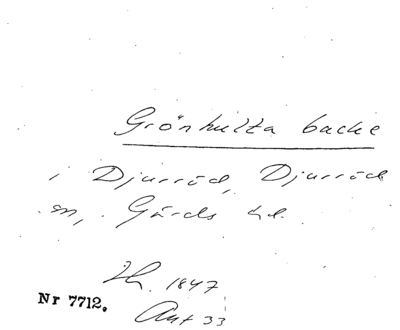 Grönhulta backe
i Djurröd, Djurröds
sn, Gärds hd.
Lh. 1847
Nr 7712.
Akt 33